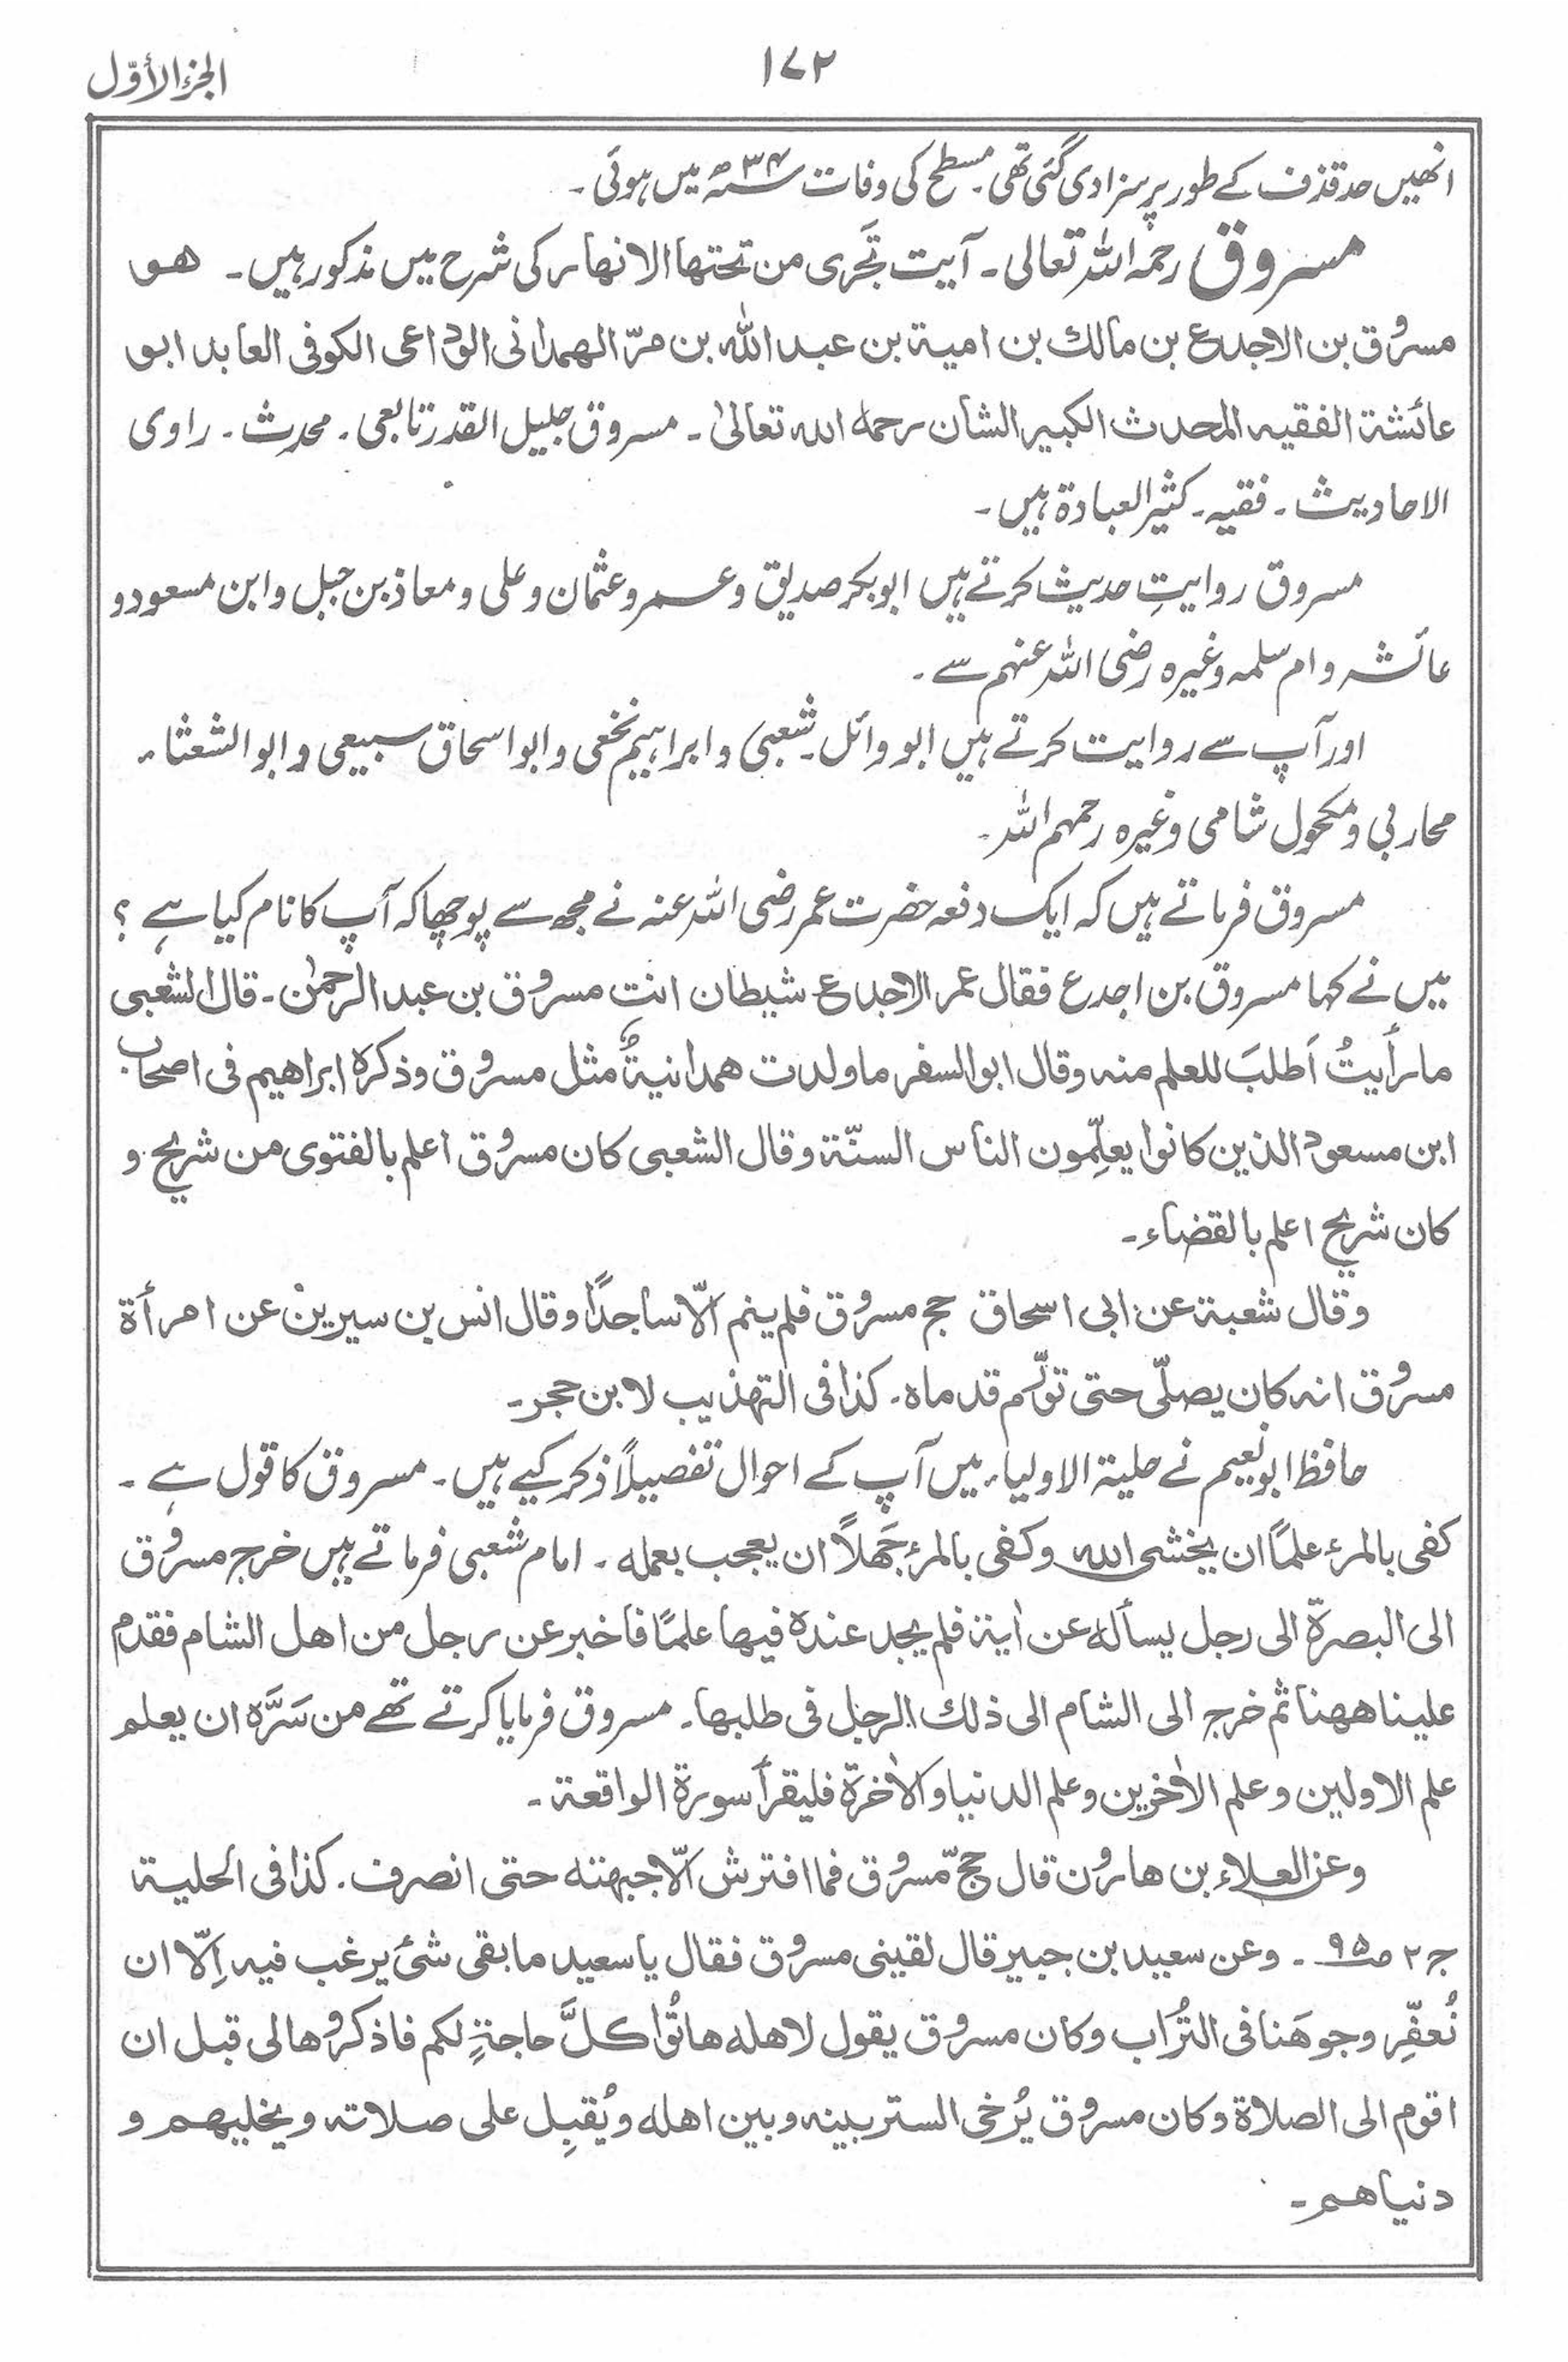 الجزء الأوّل
۱۷۲
انھیں حد قذف کے طور پر سزا دی گئی تھی۔ مسطح کی وفات ۳۴ھ میں ہوئی۔
مسروق رحمہ اللہ تعالی۔ آیت تَجری من تحتہا الانھار کی شرح میں مذکور ہیں۔ ھو
مسروق بن الاجدع بن مالك بن امیة بن عبد الله بن مرّ الهمدانی الوداعی الکوفی العابد ابو
عائشة الفقیه المحدث الکبیر الشان رحمه الله تعالیٰ۔ مسروق جلیل القدر تابعی۔ محدث۔ راوی
الاحادیث۔ فقیہ۔ کثیر العبادۃ ہیں۔
مسروق روایتِ حدیث کرتے ہیں ابوبکر صدیق و عمر و عثمان و علی و معاذ بن جبل و ابن مسعود و
عائشہ و ام سلمہ وغیرہ رضی اللہ عنہم سے۔
اور آپ سے روایت کرتے ہیں ابو وائل۔ شعبی و ابراہیم نخعی و ابو اسحاق سبیعی و ابو الشعثاء
محاربی و مکحول شامی وغیرہ رحمہم اللہ۔
مسروق فرماتے ہیں کہ ایک دفعہ حضرت عمر رضی اللہ عنہ نے مجھ سے پوچھا کہ آپ کا نام کیا ہے ؟
میں نے کہا مسروق بن اجدع فقال عمر الاجدع شیطان انت مسروق بن عبد الرحمٰن۔ قال الشعبی
ما رأیتُ اَطلبَ للعلم منه وقال ابو السفر ما ولدت همدانیةٌ مثل مسروق وذکره ابراهیم فی اصحاب
ابن مسعود الذین کانوا یعلِّمون الناس السنّة وقال الشعبی کان مسروق اعلم بالفتوی من شریح و
کان شریح اعلم بالقضاء۔
وقال شعبة عن ابی اسحاق حج مسروق فلم ینم الّا ساجدًا وقال انس بن سیرین عن امرأة
مسروق انه کان یصلّی حتی تورّم قدماه۔ کذا فی التهذیب لابن حجر۔
حافظ ابونعیم نے حلیۃ الاولیاء میں آپ کے احوال تفصیلاً ذکر کیے ہیں۔ مسروق کا قول ہے۔
کفی بالمرء علمًا ان یخشی الله وکفی بالمرء جَهلاً ان یعجب بعمله۔ امام شعبی فرماتے ہیں خرج مسروق
الی البصرة الی رجل یسأله عن اٰیة فلم یجد عنده فیها علمًا فاخبر عن رجل من اهل الشام فقدم
علینا ههنا ثم خرج الی الشام الی ذلك الرجل فی طلبها۔ مسروق فرمایا کرتے تھے من سَرَّه ان یعلم
علم الاولین وعلم الاٰخرین وعلم الدنیا والاٰخرة فلیقرأ سورة الواقعة۔
وعن العلاء بن هارون قال حجّ مسروق فما افترش الّا جبهته حتی انصرف۔ کذا فی الحلیة
ج ۲ ص ۹۵۔ وعن سعید بن جبیر قال لقینی مسروق فقال یا سعید ما بقی شئ یرغب فیه اِلّا ان
نُعفِّر وجوهَنا فی التُراب وکان مسروق یقول لاهله هاتُوا کلَّ حاجةٍ لکم فاذکروها لی قبل ان
اقوم الی الصلاة وکان مسروق یُرخی الستر بینه وبین اهله ویُقبِل علی صلاته ویخلیهم و
دنیاهم۔